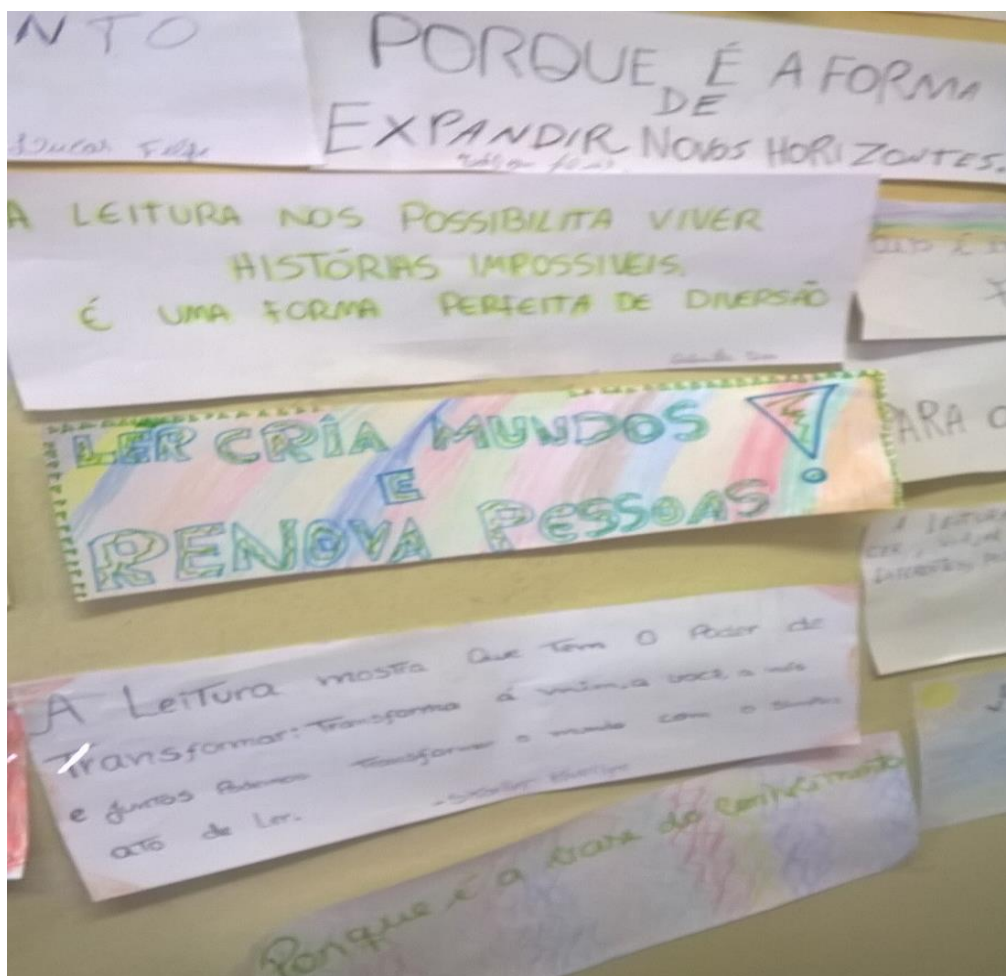 NTO
PORQUE É A FORMA
DE
EXPANDIR NOVOS HORIZONTES.
A LEITURA NOS POSSIBILITA VIVER
HISTÓRIAS IMPOSSIVEIS.
É UMA FORMA PERFEITA DE DIVERSÃO
LER CRIA MUNDOS!
E
RENOVA PESSOAS
PARA
A LEITURA
A Leitura mostra que tem o Poder de
Transformar: Transforma a mim, a você, a nós
e juntos Podemos Transformar o mundo com o
ato de Ler.
Porque é a do conhecimento